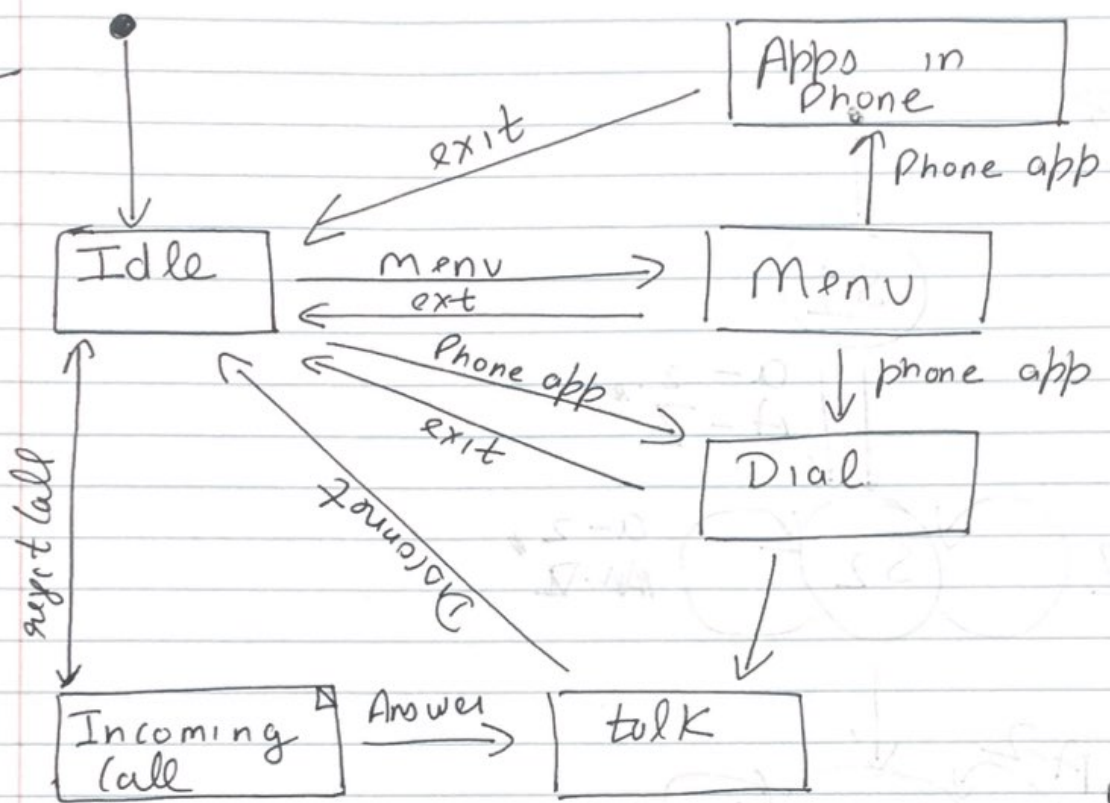 Apps in
Phone
exit
Phone app
Idle
Menu
ext
Menu
Phone app
exit
phone app
Dial
Disconnect
reject Call
Incoming
Call
Answer
talk